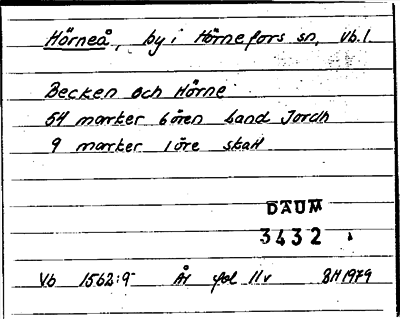 Hörneå, by i Hörnefors sn, Vb.l
Becken och Hörne
54 marker 6 ören Land Jordh
9 marker 1 öre skatt
DAUM
3432
Vb 1562:9 År fol 11v BH 1979